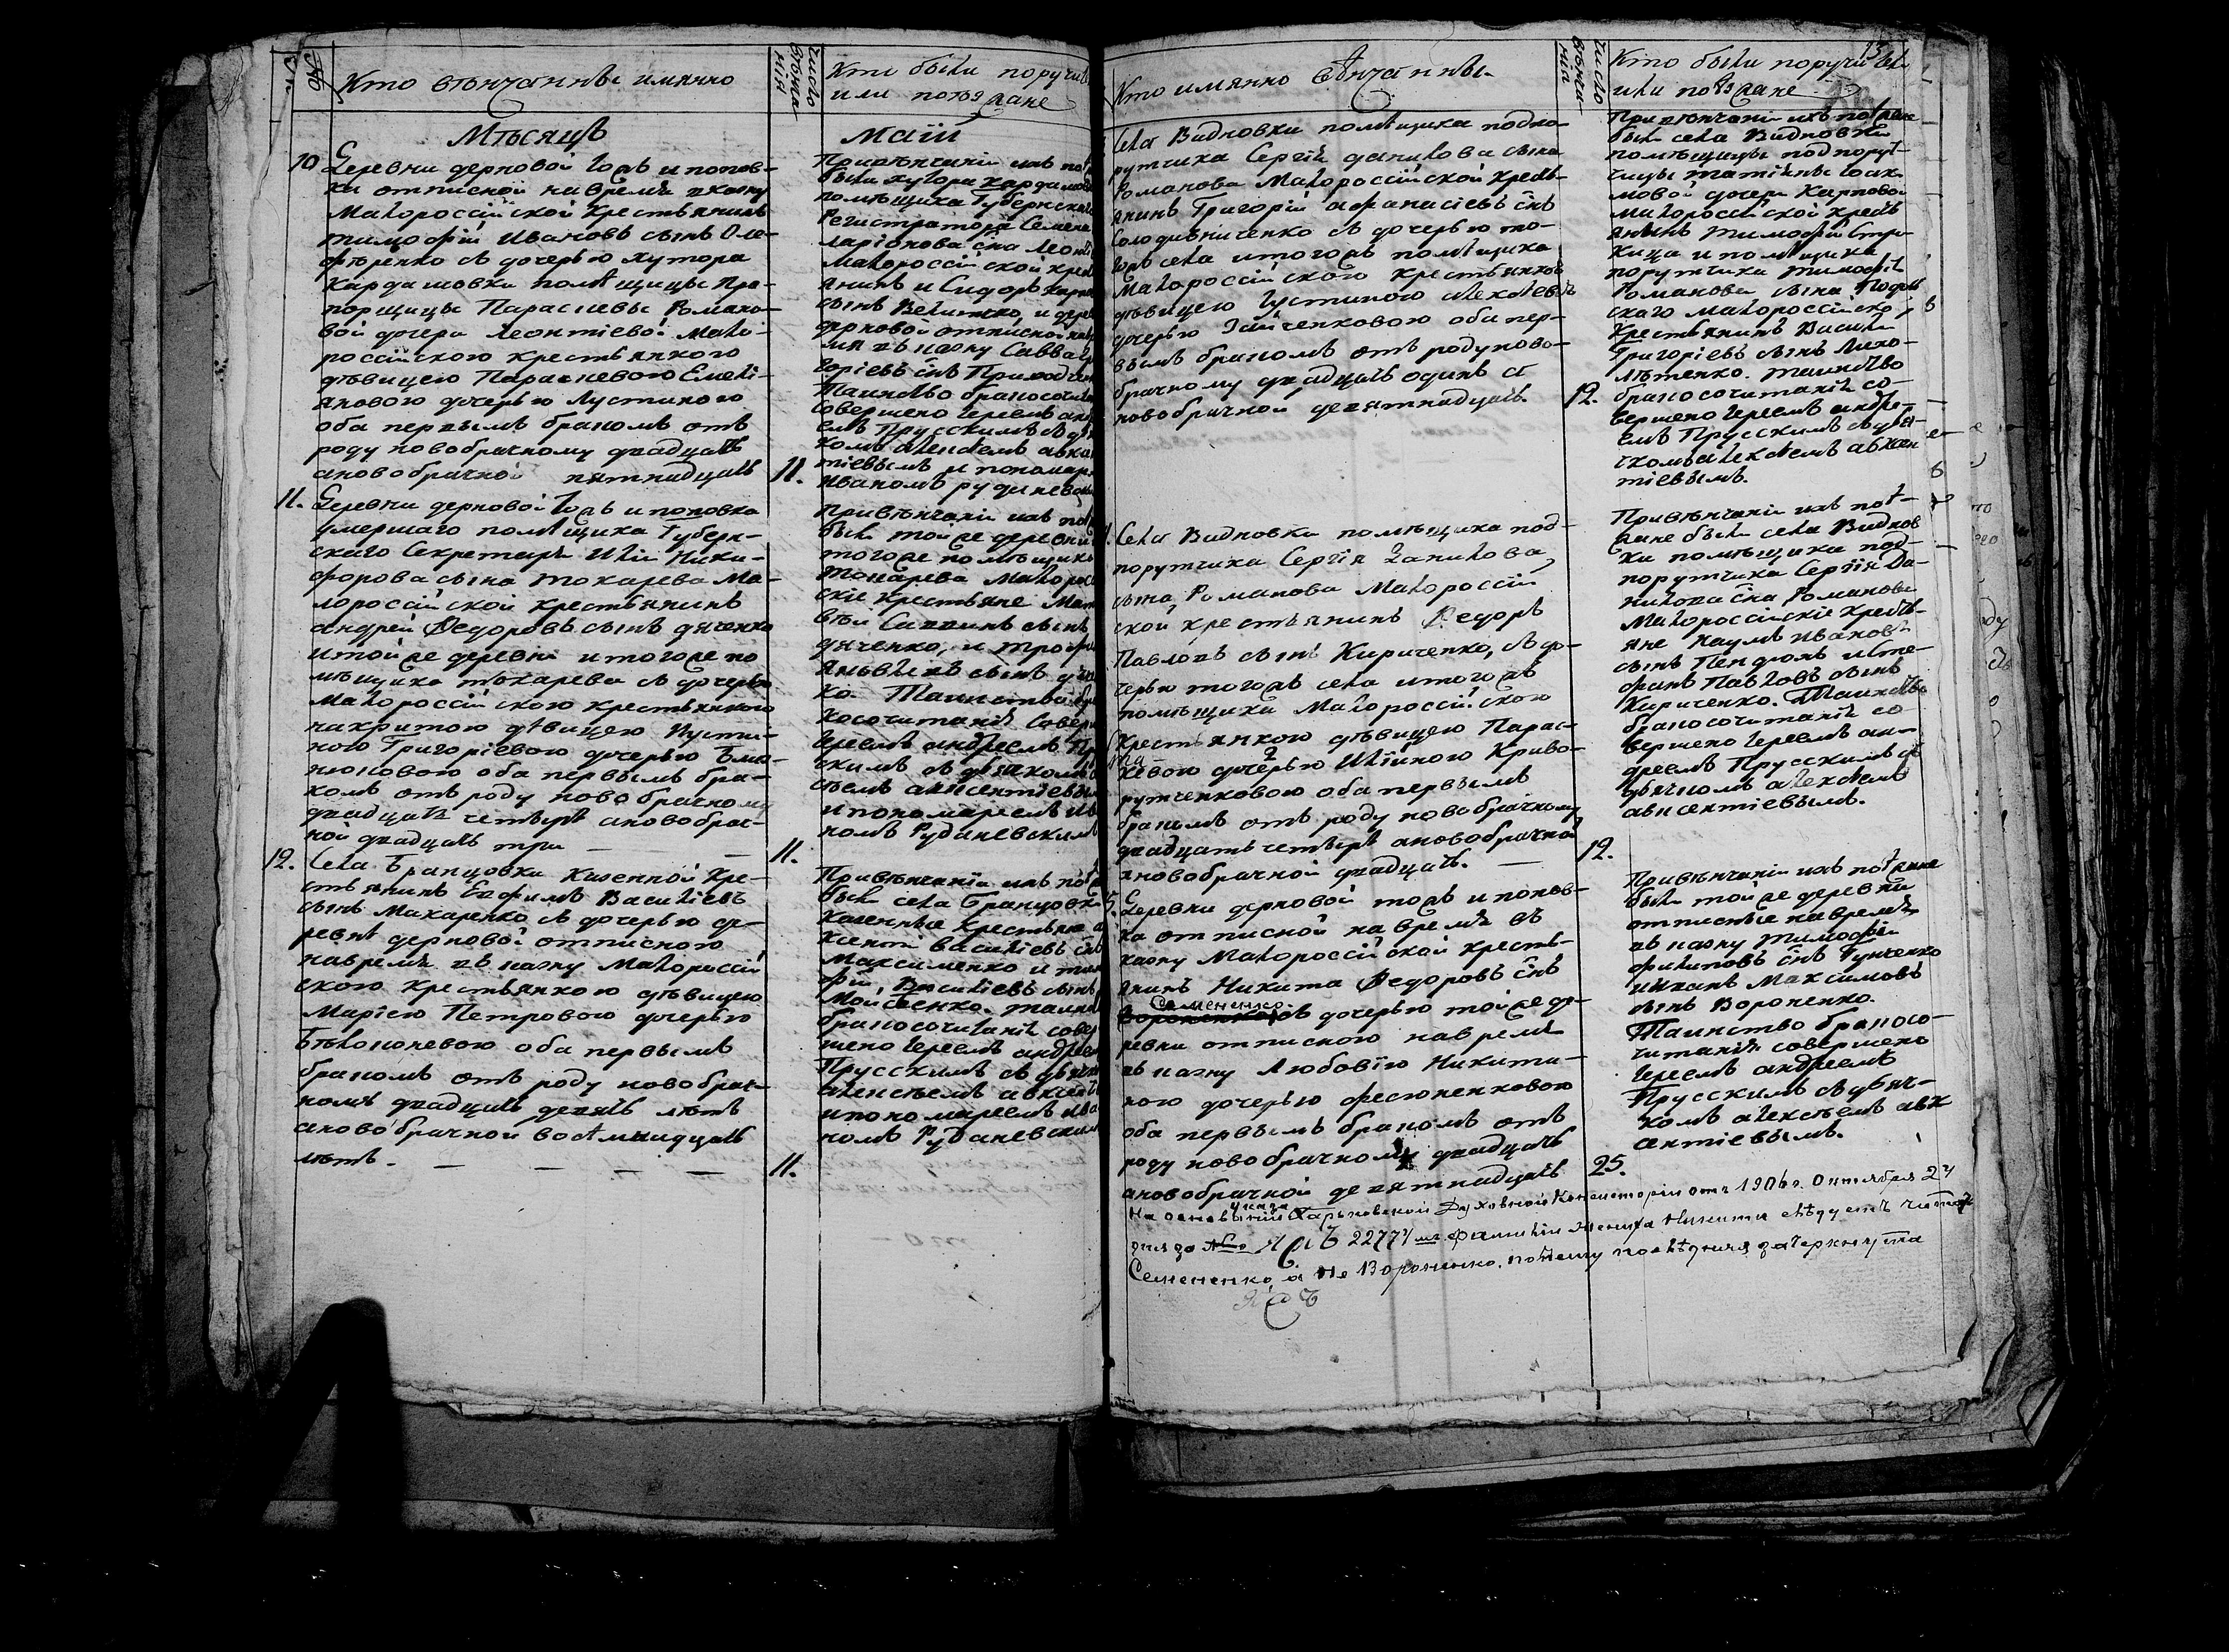 №
Кто вѣнчанны имянно
число
вѣнча
нія
Кто были поручит
или поѣзжане
Мѣсяцъ
Маіи
10 Деревни дерновой тожъ и попов-
ки отписной навремя вказну
Малороссійской крестьянинъ
тимофій Ивановъ сынъ Оле-
ферѣнко съ дочерью хутора
Кардашовки помѣщицы Пра-
порщицы Парасковы Романо-
вой дочери Леонтіевой мало-
россійскою крестьянкою
дѣвицею Парасковою Емелі-
яновою дочерью Лустиною
оба первымъ бракомъ отъ
роду новобрачному двадцать
ановобрачной пятнадцать
11.
Привѣнчаніи ихъ поѣ
были хутора Кардашов
помѣщика Губернскаго
Регистратора Семена
ларіонова сна Леонті
Малороссійской крес
янинъ и Сидоръ Карпо
сынъ Величко, и дерев
дерновой отписной навре
мя въ казну Савва Гри
горіевъ снъ Приходчен
Таинство бракосочита
Совершено Іереемъ анд
еемъ Прусскимъ съ дья
комъ алексѣемъ авксе
тіевымъ и пономар.
иваномъ рудиневск
11. Деревни дерновой тожъ и поповка
умершаго помѣщика Губерн-
скаго Секретаря Иліи Ники-
форова сына токарева Ма-
лороссійской крестьянинъ
андрей Федоровъ сынъ дяченко
итойже деревни итогоже по
мѣщика токарева съ дочерью
Малороссійскою крестьянкою
дѣвицею Иусти-
ною Григоріевою дочерью
оба первымъ бра-
комъ отъ роду новобрачному
двадцать четыре ановобрач-
ной двадцать три — —
11.
Привѣнчаніи ихъ поѣ
были тойже деревни
тогоже помѣщика
токарева Малорос
скіе крестьяне Мат
вѣй Саввинъ сынъ
дяченко, и трофи
сынъ
ко. Таинство бра
косочитанія Совер
Іереемъ андреемъ Пру
скимъ съ дьякомъ а
сѣемъ авксентіевым
ипономаремъ ива
номъ Рудиневскимъ
12. Села Бранцовки казенной кре-
стьянинъ Ефимъ Василіевъ
сынъ Макаренко съ дочерью де-
ревнѣ дерновой отписною
навремя въ казну Малороссій
скою крестьянкою дѣвицею
Маріею Петровою дочерью
Бѣлоконевою оба первымъ
бракомъ отъ роду новобрач-
номъ двадцать девять лѣтъ
ановобрачной восѣмнадцать
лѣтъ. — — — —
11.
Привѣнчаніи ихъ поѣз
были села Бранцовки
казенные крестьяне а
ксенти василіевъ снъ
Максименко и тим
фій Василіевъ сынъ
Мойсѣенко. таинст
бракосочитанія совер
шено Іереемъ андреем
Прусскимъ съ дьяком
алексѣемъ авксент
ипономаремъ ива
номъ Рудиневским
Кто имянно вѣнчанны.
число
вѣнча
нія
Кто были поручители
или поѣзжане
Села Видновки помѣщика подпо-
рутчика Сергія данилова сына
Романова Малороссійской кресть-
янинъ Григорій афанасіевъ снъ
Солодовніченко съ дочерью то-
гожъ села итогожъ помѣщика
Малороссійскою крестьянкою
дѣвицею Іустиною Алексѣевою
дочерью Зайченковою оба пер-
вымъ бракомъ отъ роду ново-
брачному двадцать одинъ а
новобрачной девятнадцать.
12.
Привѣнчаніи ихъ поѣзжане
были села Видновки
помѣщицы подпорут-
чицы татіяны Іоаки
мовой дочери Карповой
малороссійской кресть
янинъ тимофій Стри-
жица и помѣщика
порутчика тимофія
Романова сына
скаго малороссійской
крестьянинъ Василій
григоріевъ сынъ Лихо-
лѣтенко. таинство
бракосочитанія со-
вершено Іереемъ андре-
емъ Прусскимъ съ дья-
чкомъ алексѣемъ авксен
тіевымъ.
Села Видновки помѣщика под-
порутчика Сергія данилова
сына Романова Малороссій
ской крестьянинъ Федоръ
Павловъ сынъ Кириченко, съ до-
черью тогожъ села итогожъ
помѣщика Малороссійскою
крестьянкою дѣвицею Парас-
кевою дочерью Иліиною Криво-
рутченковою оба первымъ
бракомъ отъ роду новобрачному
двадцать четыре ановобрачной
ановобрачной двадцать. —
12.
Привѣнчаніи ихъ поѣ-
жане были села Виднов
ки помѣщика под-
порутчика Сергія Да-
нилова сна Романова
Малороссійскіе кресть-
яне Наумъ ивановъ
сынъ Пендюхъ исте-
фанъ Павловъ сынъ
Кириченко. Таинство
бракосочитанія со
вершено Іереемъ ан-
дреемъ Прусскимъ съ
дьячкомъ алексѣемъ
авксентіевымъ.
Деревни дерновой тожъ и попов-
ка отписной навремя въ
казну Малороссійской кресть-
янинъ Никита Федоровъ снъ
Семененко.
Вороненко съ дочерью тойже де-
ревни отписною навремя
въ казну Любовію Никити-
ною дочерью фесюненковою
оба первымъ бракомъ отъ
роду новобрачному двадцать
ановобрачной девятнадцать
25.
Привѣнчаніи ихъ поѣзжане
были тойже деревни
отписные навремя
въ казну тимофій
филиповъ снъ Гунченко
иіванъ Максимовъ
сынъ Вороненко.
Таинство бракосо-
читанія совершено
Іереемъ андреемъ
Прусскимъ съ дьяч-
комъ алексѣемъ авк
сентіевымъ.
На основаніи указа Харьковской Духовной Консисторіи отъ 1906 г. Октября 24
дня за № 22774 фамилію жениха Никита слѣдуетъ читать
Семененко, а не Вороненко, почему послѣдняя зачеркнута